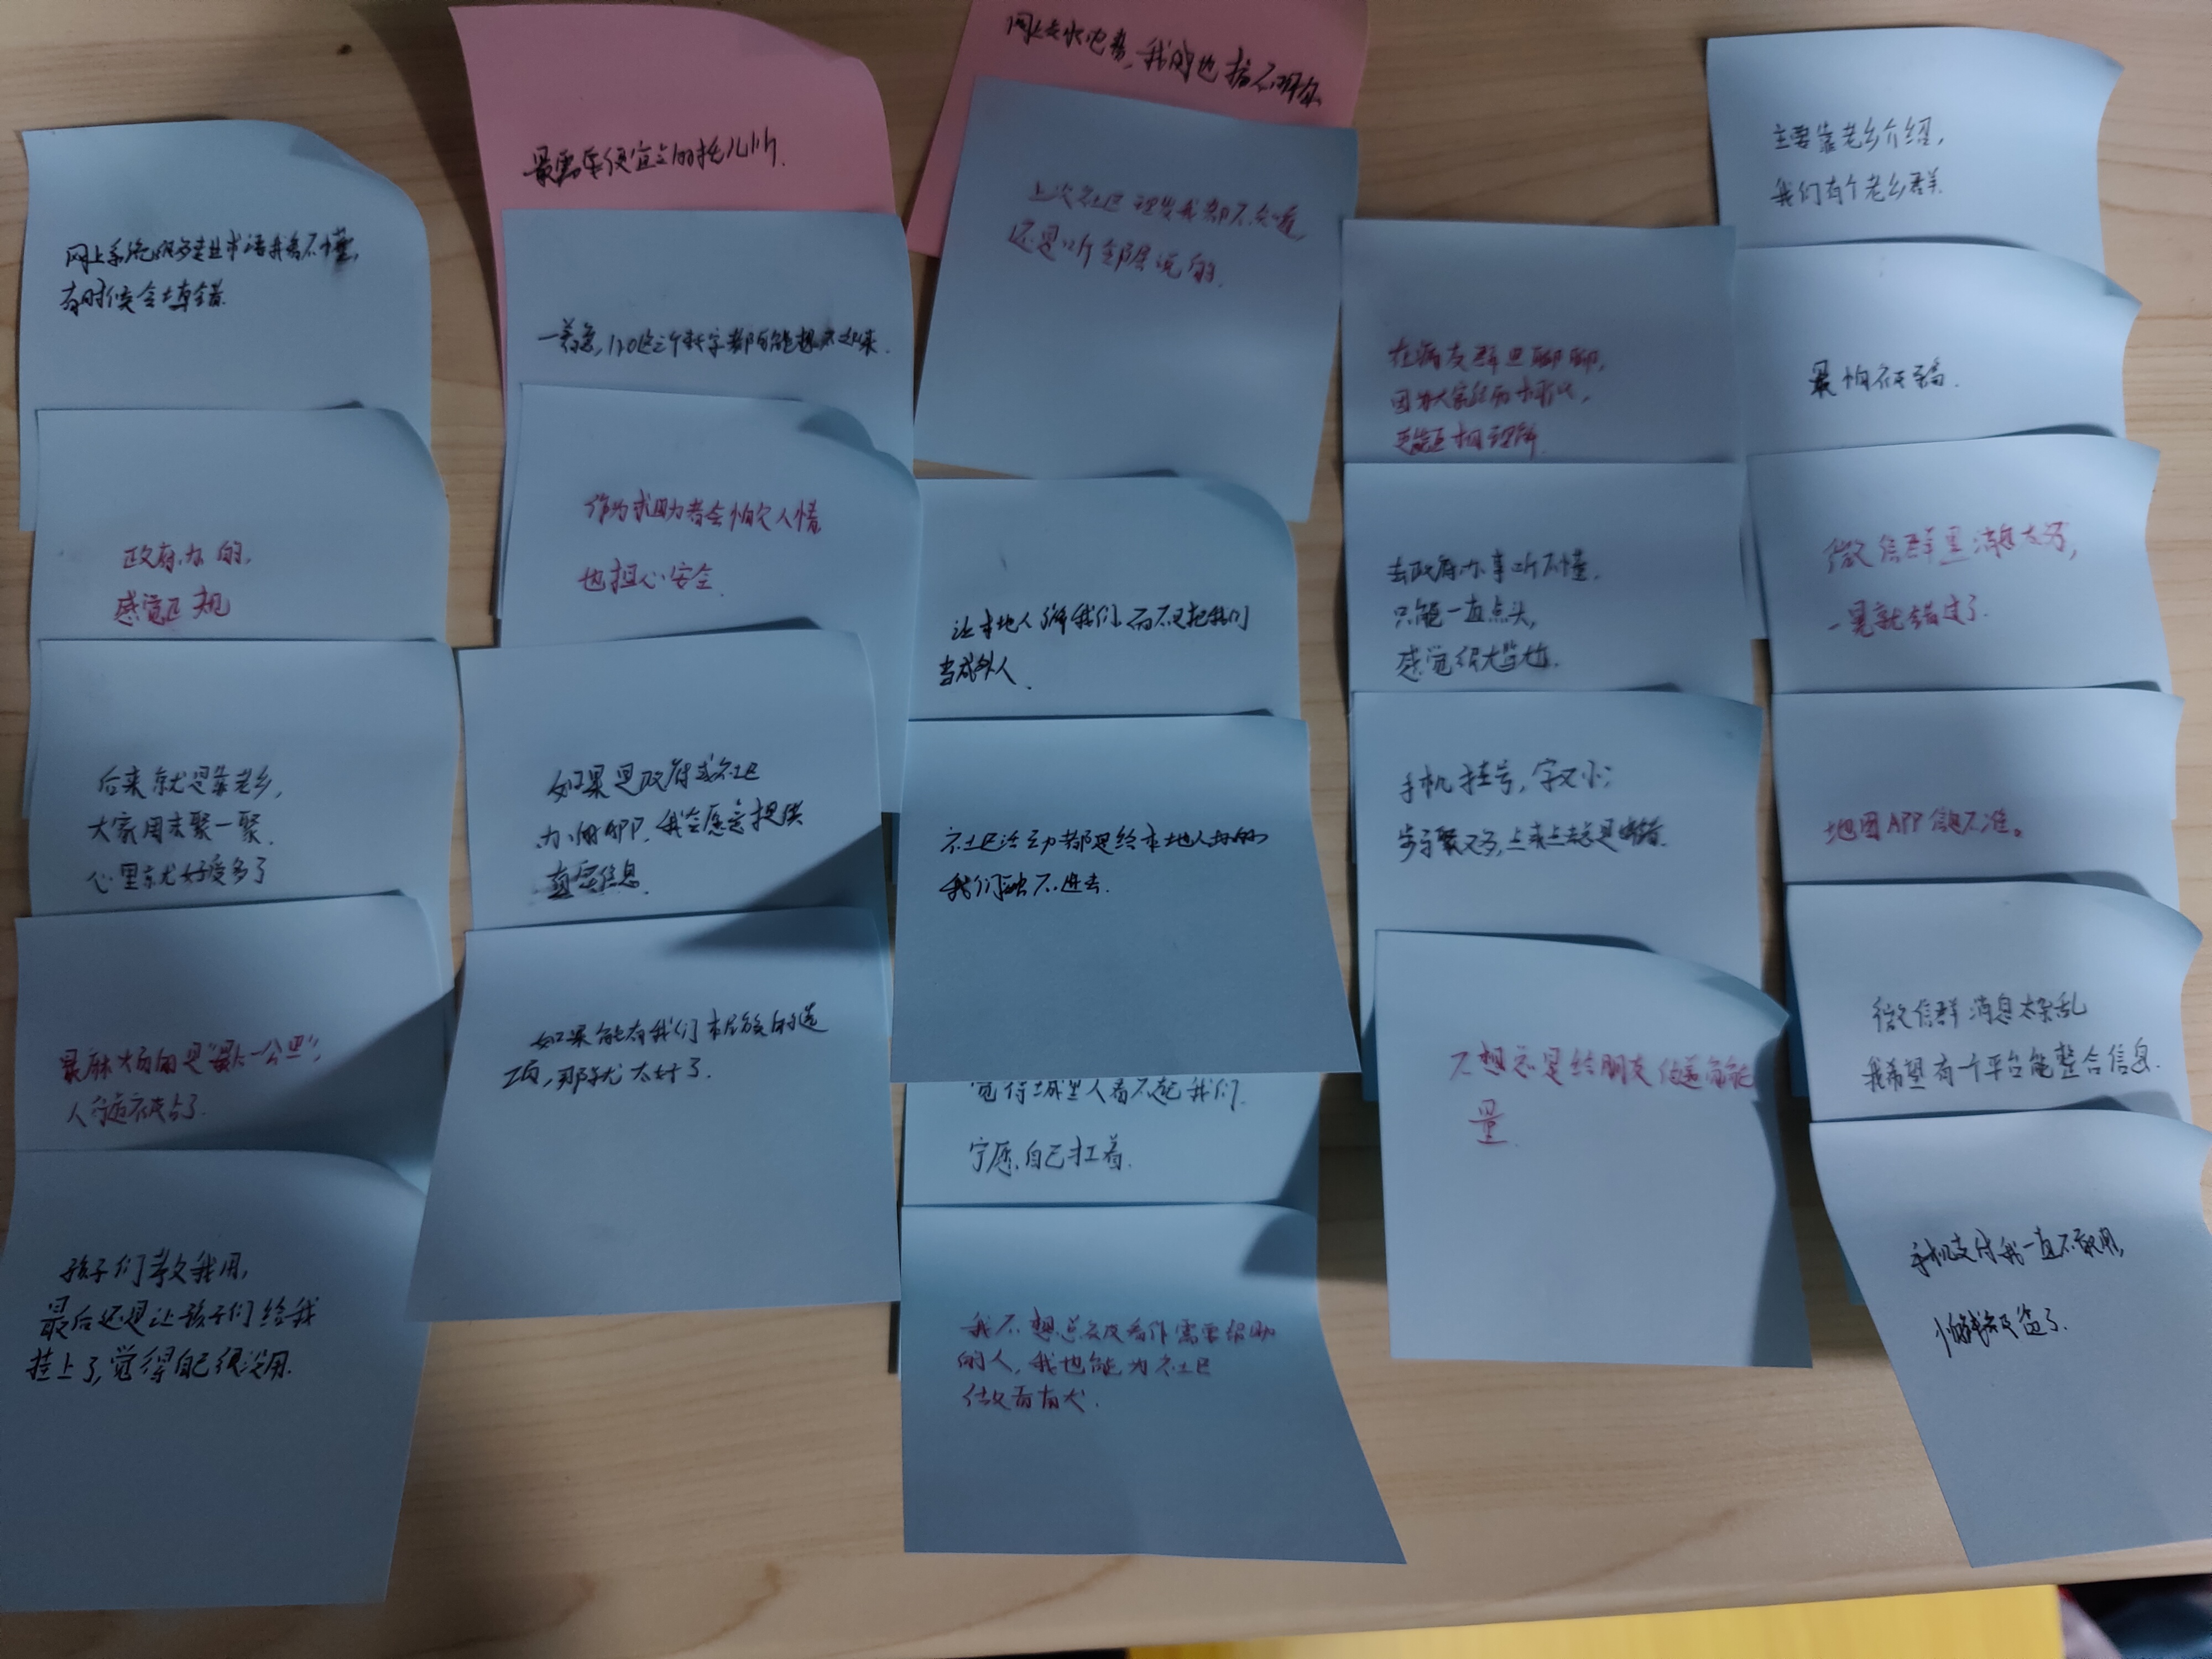 网上系统很多专业术语我看不懂,
有时候会填错.
政府办的,
感觉正规
后来就是靠老乡,
大家周末聚一聚.
心里就好受多了
最麻烦的是“最后一公里”,
人行道被占了.
孩子们教我用,
最后还是让孩子们给我
挂上了,觉得自己很没用.
最需要便宜点的托儿所.
一着急,120这三个数字都可能想不起来.
作为求助者会怕欠人情
也担心安全.
如果是政府或社区
办的APP,我会愿意提供
真实信息.
如果能有我们本民族的选
项,那就太好了.
网上交水电费,我的也搞不明白
上次社区理发我都不知道,
还是听邻居说的.
让本地人了解我们,而不是把我们
当成外人.
社区活动都是给本地人办的
我们融不进去.
觉得城里人看不起我们.
宁愿自己扛着.
我不想总被看作需要帮助
的人,我也能为社区
做贡献.
在病友群里聊聊,
因为大家经历相似,
更能互相理解.
去政府办事听不懂.
只能一直点头,
感觉很尴尬.
手机挂号,字又小;
步骤又多,点来点去总是出错.
不想总是给朋友传递负能
量.
主要靠老乡介绍,
我们有个老乡群.
最怕被骗.
微信群里消息太多,
一晃就错过了.
地图APP信息不准。
微信群消息太杂乱
我希望有一个平台能整合信息.
手机支付我一直不敢用,
怕钱被盗了.